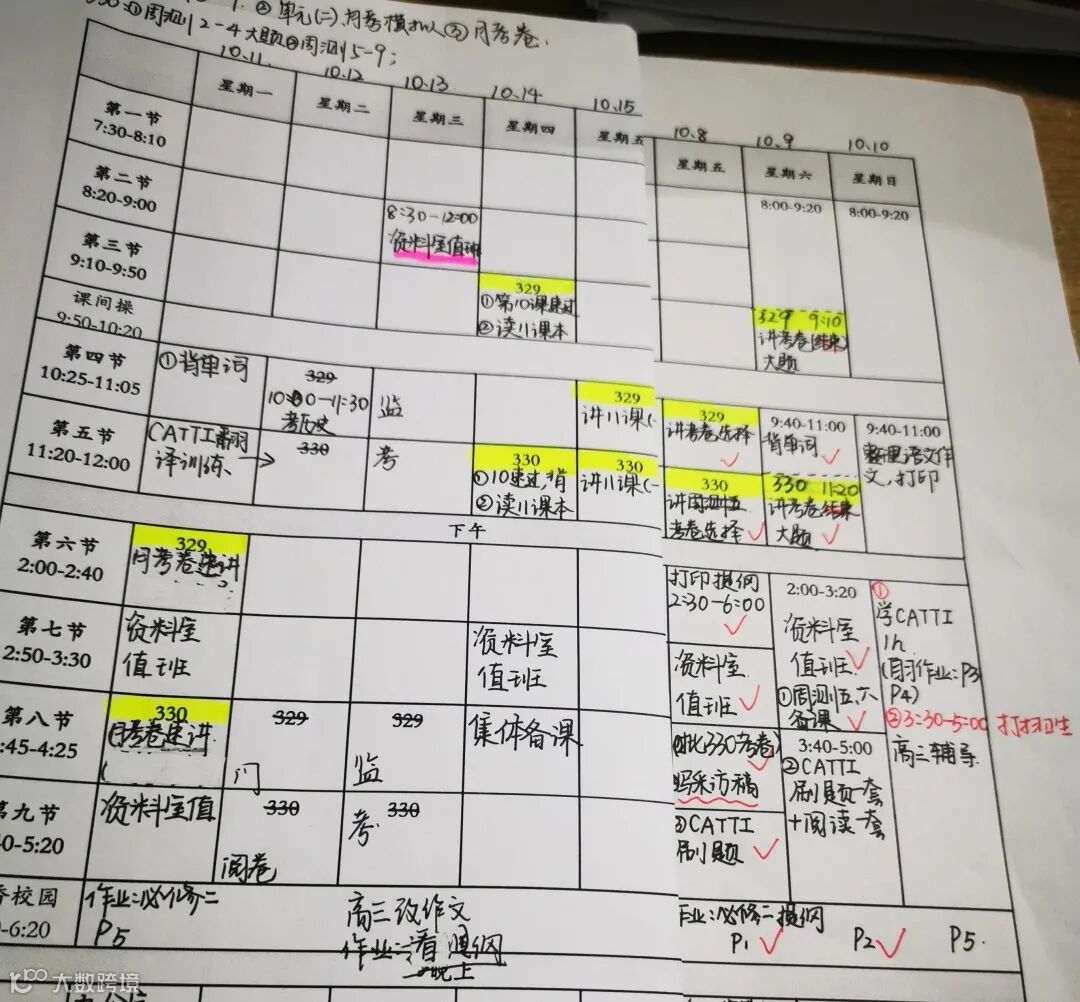 ②单元(二)、月考模拟 ③月考卷.
330:①周测2-4大题②周测5-9;
10.11 10.12 10.13 10.14 10.15
星期一 星期二 星期三 星期四 星期五
第一节
7:30-8:10
第二节
8:20-9:00
8:30-12:00
资料室值班
第三节
9:10-9:50
329
①第10课速过
②读11课本
课间操
9:50-10:20
第四节
10:25-11:05
①背单词
329
11:30
考历史
监
329
讲11课(一
第五节
11:20-12:00
CATTI翻
译训练
330
考
330
①10速过,背
②读11课本
330
讲11课(一
下午
第六节
2:00-2:40
329
月考卷速讲
第七节
2:50-3:30
资料室
值班
资料室
值班
第八节
:45-4:25
330
月考卷速讲
329
329
监
集体备课
第九节
0-5:20
资料室值
330
阅卷
330
考
校园
-6:20
作业:必修二
P5
高三改作文
作业:看提纲
晚上
10.8 10.9 10.10
星期五 星期六 星期日
8:00-9:20 8:00-9:20
329 9:10
讲考卷(结束)
大题
329
讲考卷选择
9:40-11:00
背单词
9:40-11:00
整理语文作
文,打印
330
讲周测五
考卷选择
330 11:20
讲考卷结束
大题
打印提纲
2:30-6:00
2:00-3:20
资料室
值班
①周测五、六
备课
①
学CATTI
1h
P3
P4)
②3:30-5:00 打扫卫生
高三辅导
资料室
值班
330考卷)
采访稿
3:40-5:00
②CATTI
刷题一套
+阅读一套
③CATTI
刷题
作业:必修二提纲
P1 P2 P5.
大数跨境